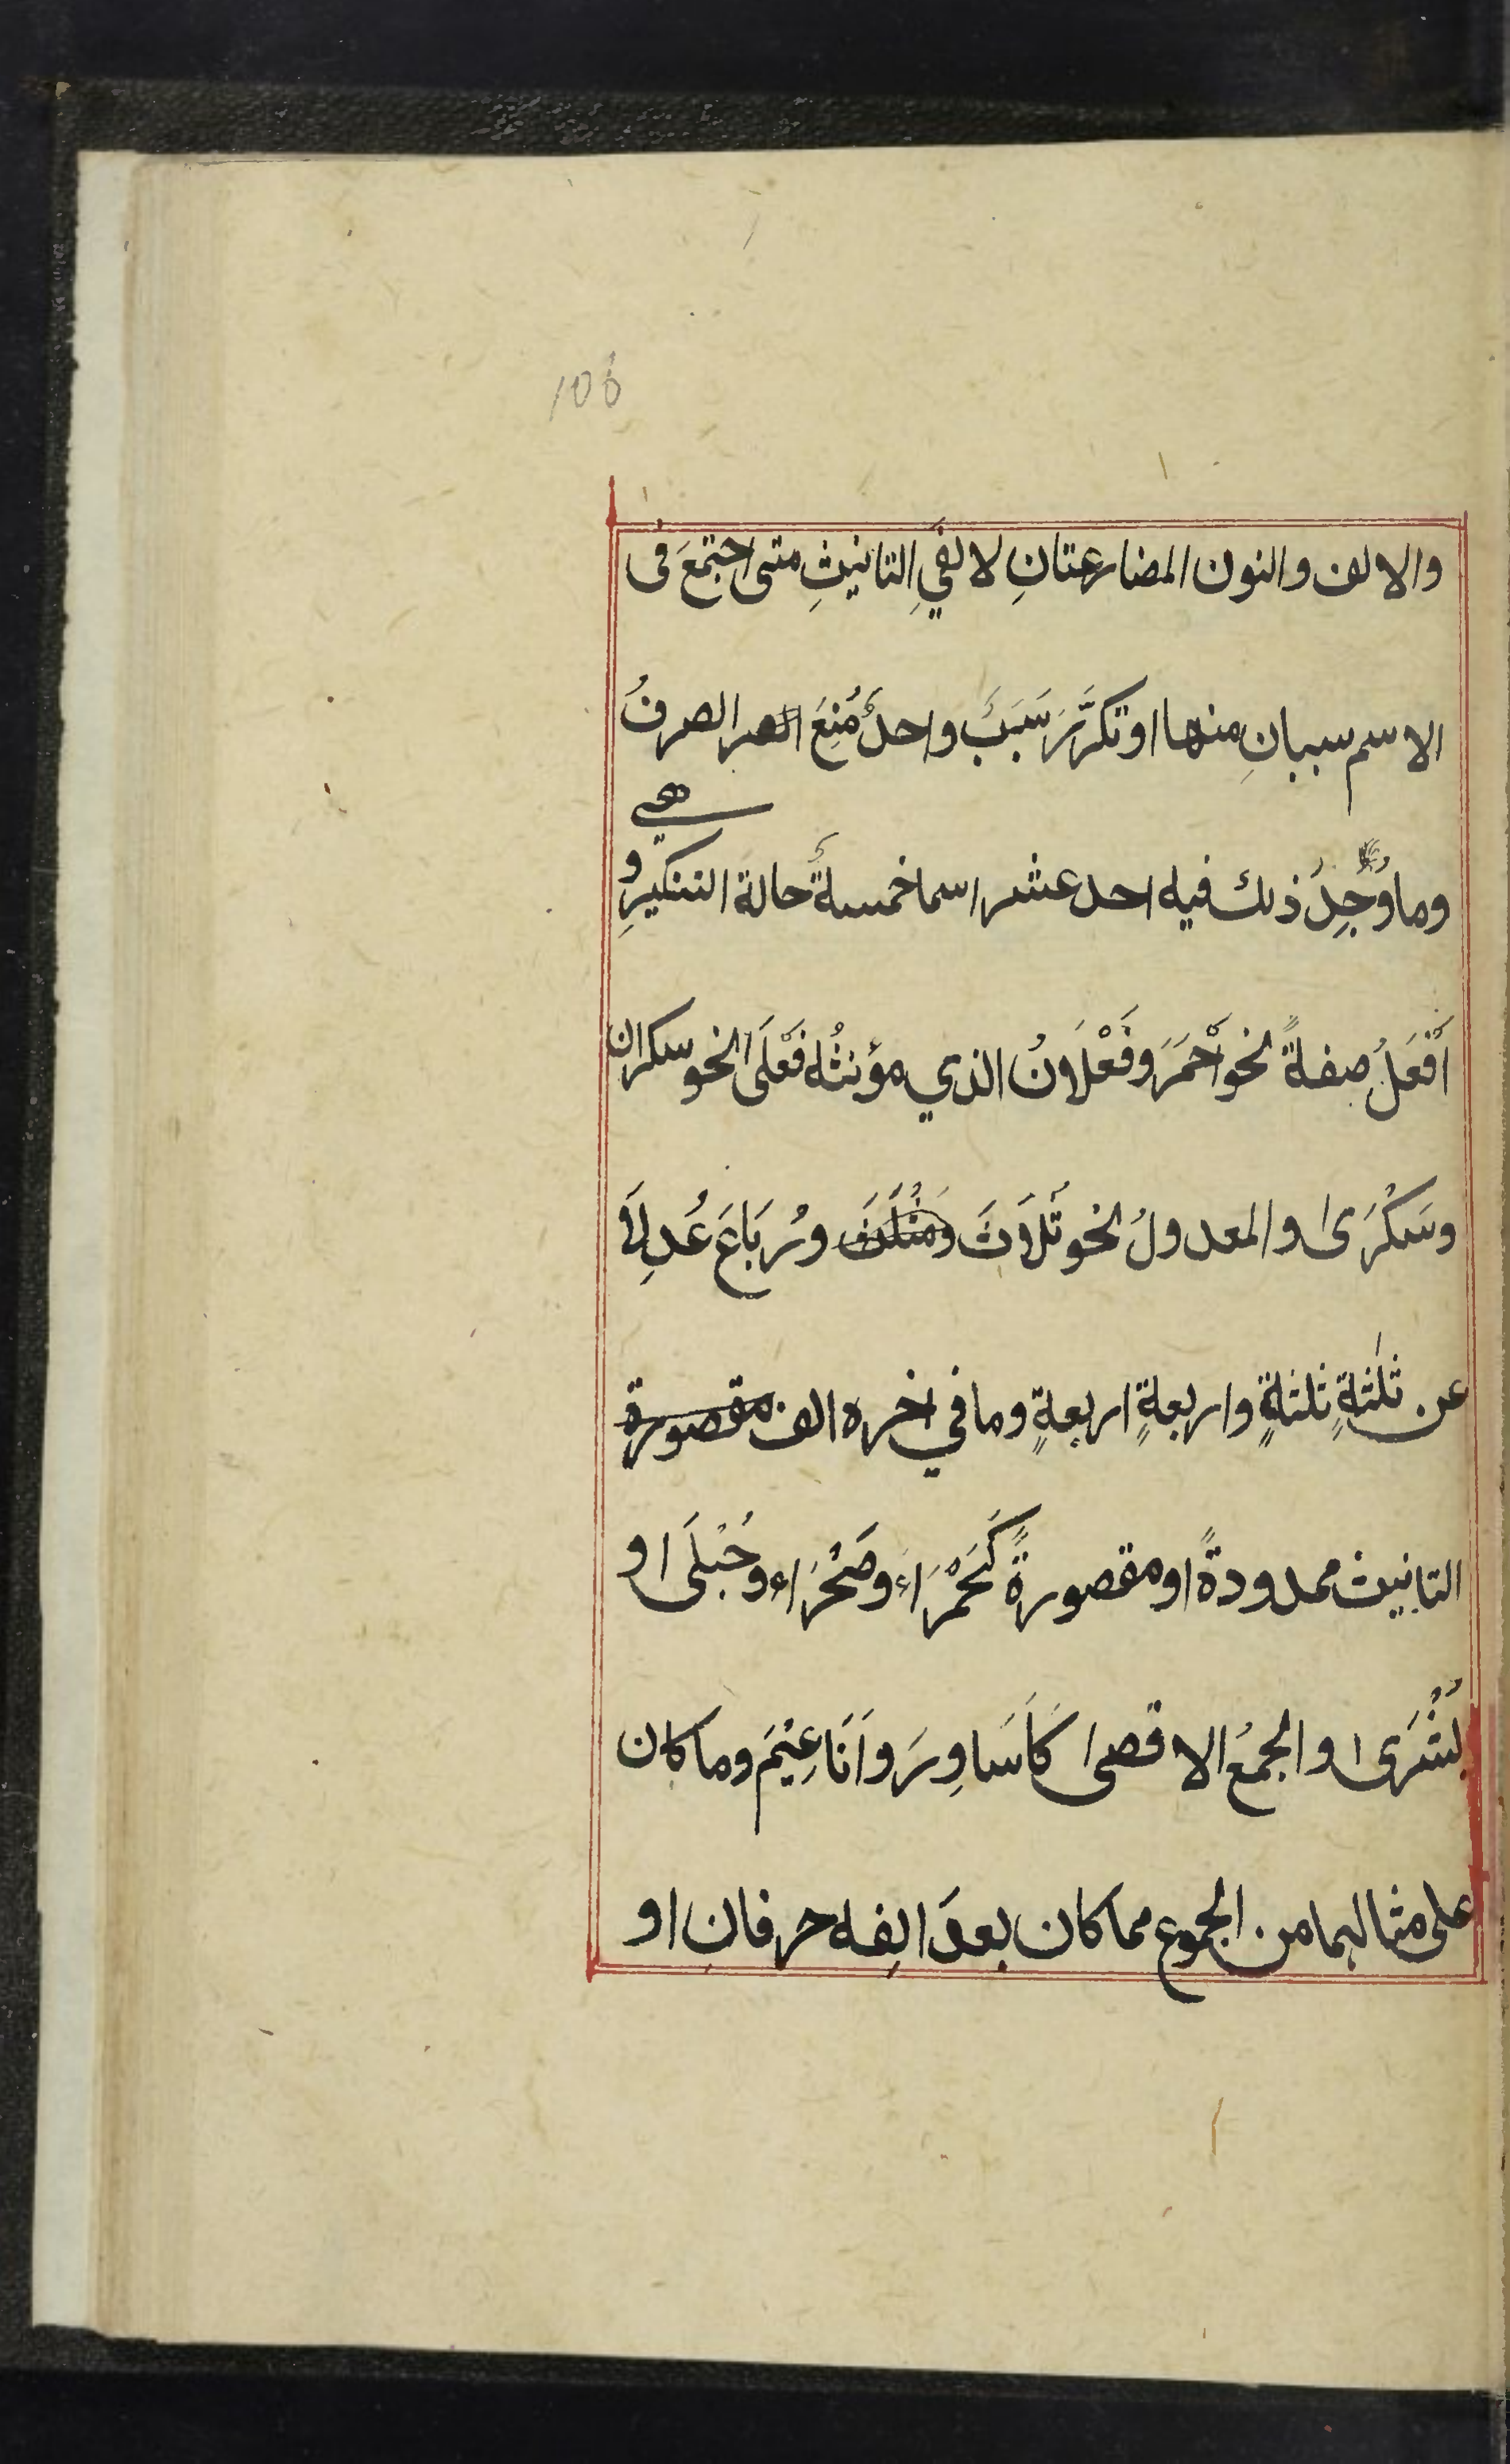 106
والالف والنون المضارعتانِ لالفيِ التانيثِ متى اجتمعَ فى
الاسم سببانِ منها او تكرَّرَ سَبَبٌ واحدٌ مُنِعَ الصر الصرفُ
وما وُجِدَ ذلك فيه احد عشر اسما خمسةٌ حالة التنكيرِ و
هى
اَفْعَلُ صفةً نحو اَحْمَرَ وفَعْلَانُ الذي مؤنثُه فَعْلَى نحو سكران
وسَكْرَى والمعدولُ نحو ثُلَاثَ ومَثْلَثَ ورُبَاعَ عُدِلَا
عن ثلٰثةٍ ثلثةٍ واربعةٍ اربعةٍ وما في اخره الف مقصورة
التانيث ممدودةً او مقصورةً كَحَمْرَاءَ وصَحْرَاء وحُبْلَى او
بُشْرَى والجمعُ الاقصى كَاَسَاوِرَ واَنَاعِيْمَ وما كان
على مثالهما من الجموع مما كان بعدَ الِفه حرفانِ او